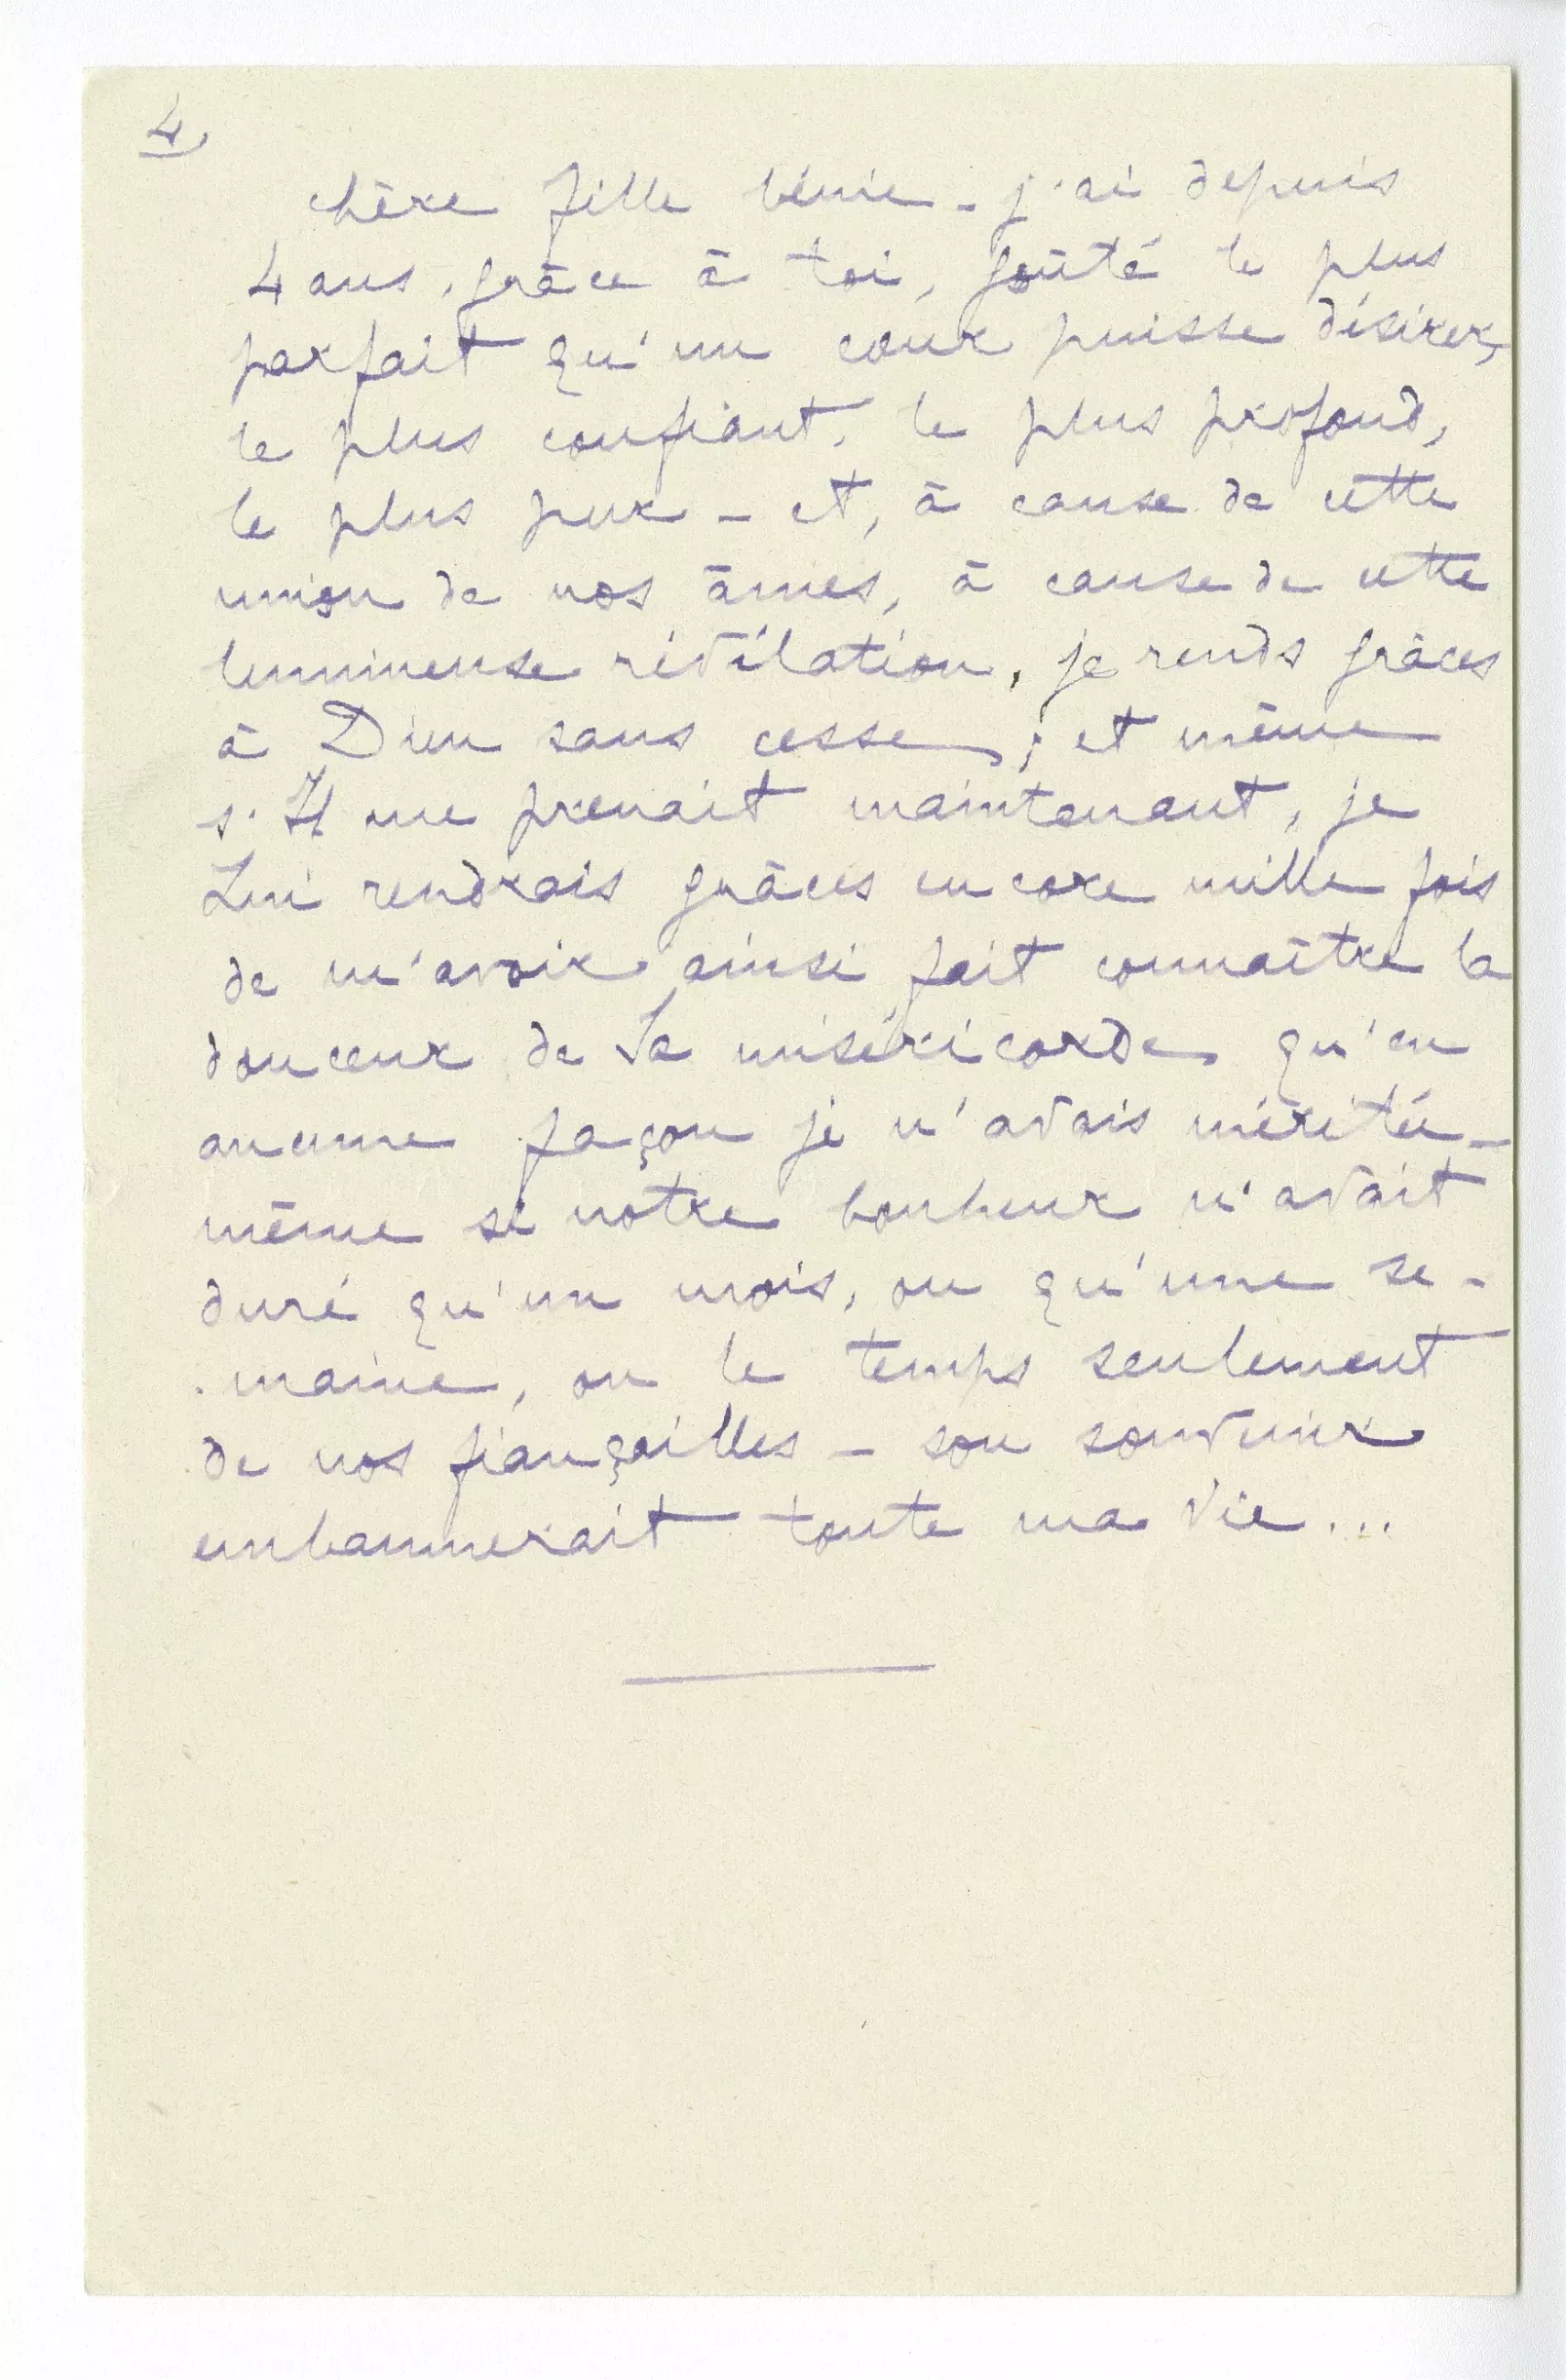 4
chère fille bénie - j'ai depuis
4 ans, grâce à toi, goûté le plus
parfait qu'un cœur puisse désirer,
le plus confiant, le plus profond,
le plus pur - et, à cause de cette
union de nos âmes, à cause de cette
lumineuse révélation, je rends grâces
à Dieu sans cesse ; et même
s'Il me prenait maintenant, je
Lui rendrais grâces encore mille fois
de m'avoir ainsi fait connaître la
douceur de Sa miséricorde qu'en
aucune façon je n'avais méritée -
même si notre bonheur n'avait
duré qu'un mois, ou qu'une se-
maine, ou le temps seulement
de nos fiançailles - son souvenir
embaumerait toute ma vie...